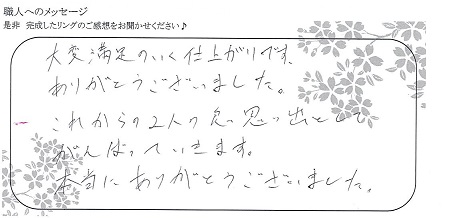 職人へのメッセージ
是非 完成したリングのご感想をお聞かせください♪
大変満足のいく仕上がりです、
ありがとうございました。
これからの2人の 思い出として
がんばっていきます。
本当にありがとうございました。